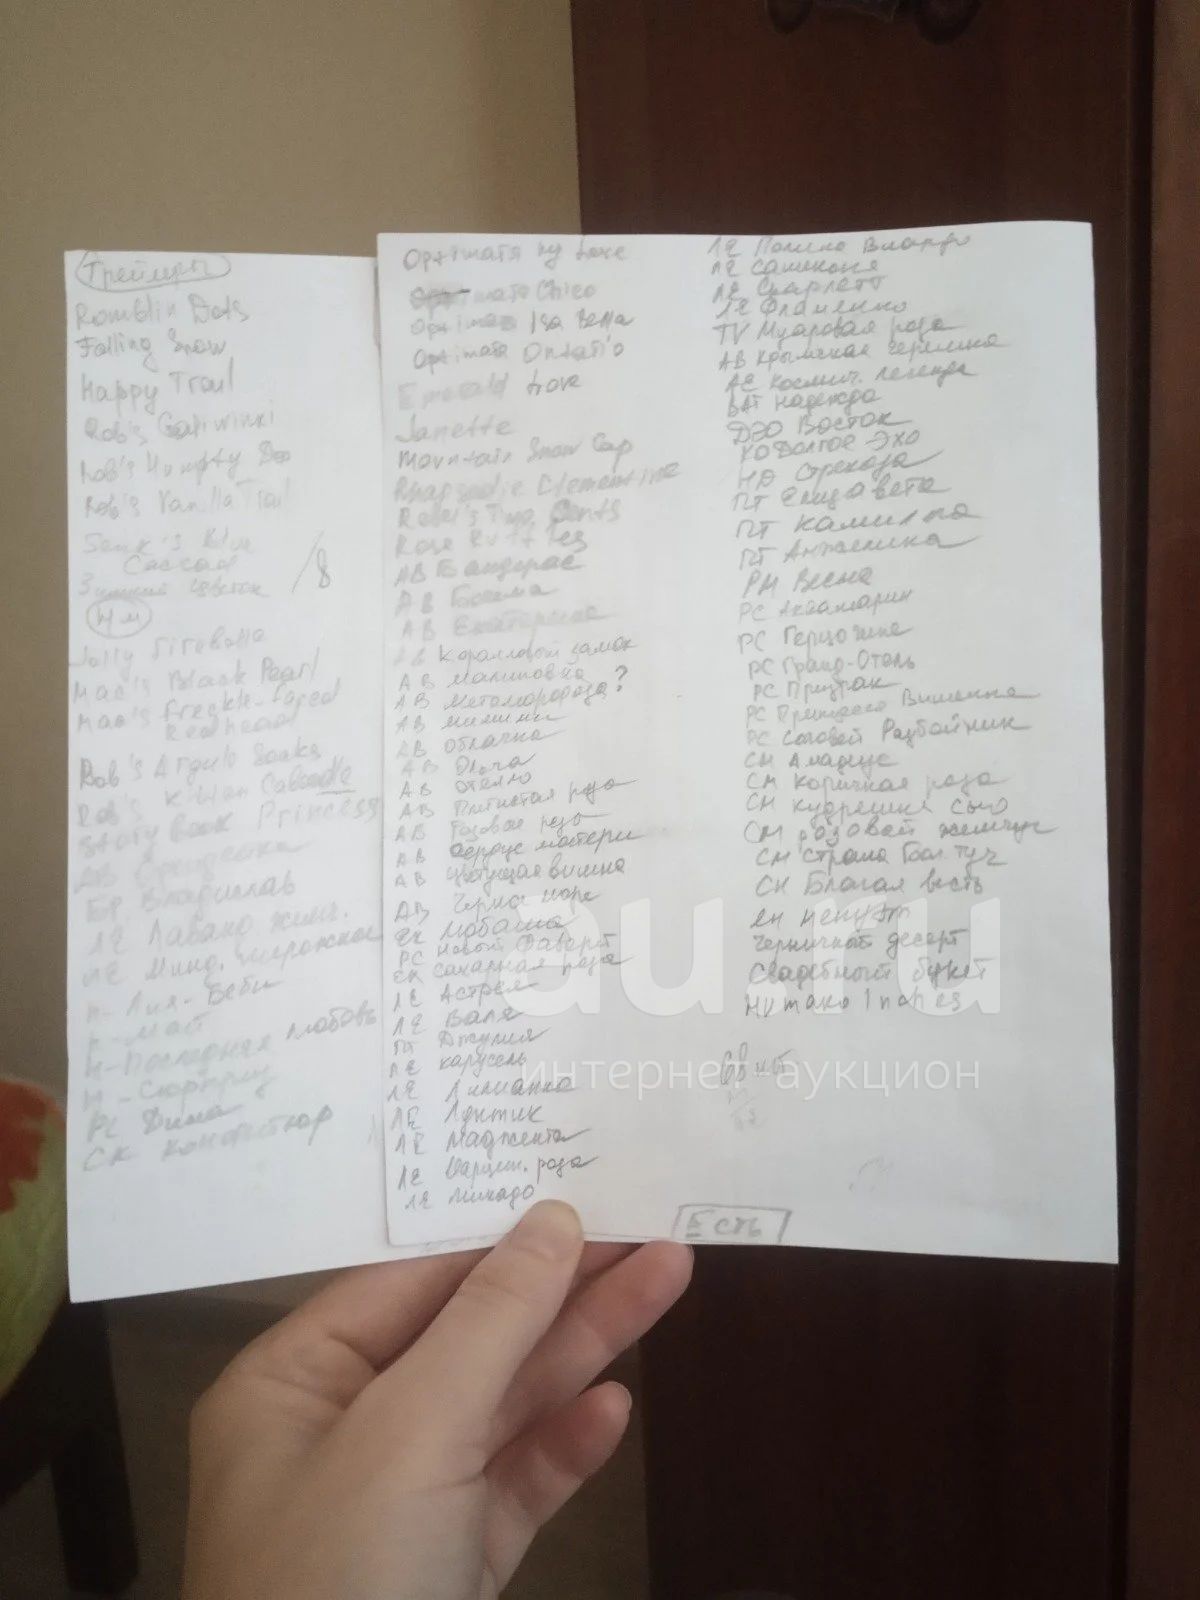 Трейлеры
Romblin Dots
Falling Snow
Happy Trail
Rob's Galiwinki
Rob's Humpty Doo
Rob's Vanilla Trail
Senk's Blue
Cascad
цветок /8
Мм
Jolly Fireballa
Mac's Black Pearl
Mac's Freckle-faced
Redhead
Bob's Argulo Socks
Rob's Kitian Caboodle
Story book Princess
АВ
БР Владислав
ЛЕ Лавандо. жемч.
ЛЕ Минд. пирожное
Н-Лия-Беби
Н-Май
Н-Последняя любовь
Н-Сюрприз
РС Дима
СК Конфитюр
Optimata my Love
Optimata Chico
Optimara Isa Bella
Optimata Ontatio
Emerald Love
Janette
Mountain Snow Cap
Rhapsodie Clementine
Rebel's Two Cents
Rose Ruffles
АВ Бандерас
АВ Богема
АВ Екатерина
АВ Коралловый замок
АВ Малиновка
АВ Метаморфоза?
АВ мимини
АВ Облачко
АВ Ольга
АВ Отелло
АВ Пятнистая роза
АВ Розовая роза
АВ Сердце матери
АВ Цветущая вишня
АВ Черное море
ЕК Любаша
РС новый Фаворит
ЕК сахарная роза
ЛЕ Астрея
ЛЕ Валя
ПТ Джулия
ЛЕ карусель
ЛЕ Лилианна
ЛЕ Лунтик
ЛЕ Маджента
ЛЕ роза
ЛЕ Микадо
ЛЕ Полина Виардо
ЛЕ
ЛЕ Скарлетт
ЛЕ Фламенко
TV Муаровая роза
АВ Крымская черешня
АЕ Космич. легенда
ВАТ Надежда
ДЭО Восток
КО Долгое Эхо
НД Стрекоза
ПТ Елизавета
ПТ Камилла
ПТ Анжелика
РМ Весна
РС Аквамарин
РС Герцогиня
РС Гранд-Отель
РС Призрак
РС Принцесса Вишенка
РС Соловей Разбойник
СМ Амадеус
СМ Коричная роза
СМ кудрешки сыо
СМ розовый жемчуг
СМ Страна Бол. туч
СК Благая весть
ЯН
Черничный десерт
Свадебный букет
Humako Inches
68 шт
Есть
au.ru
интернет-аукцион